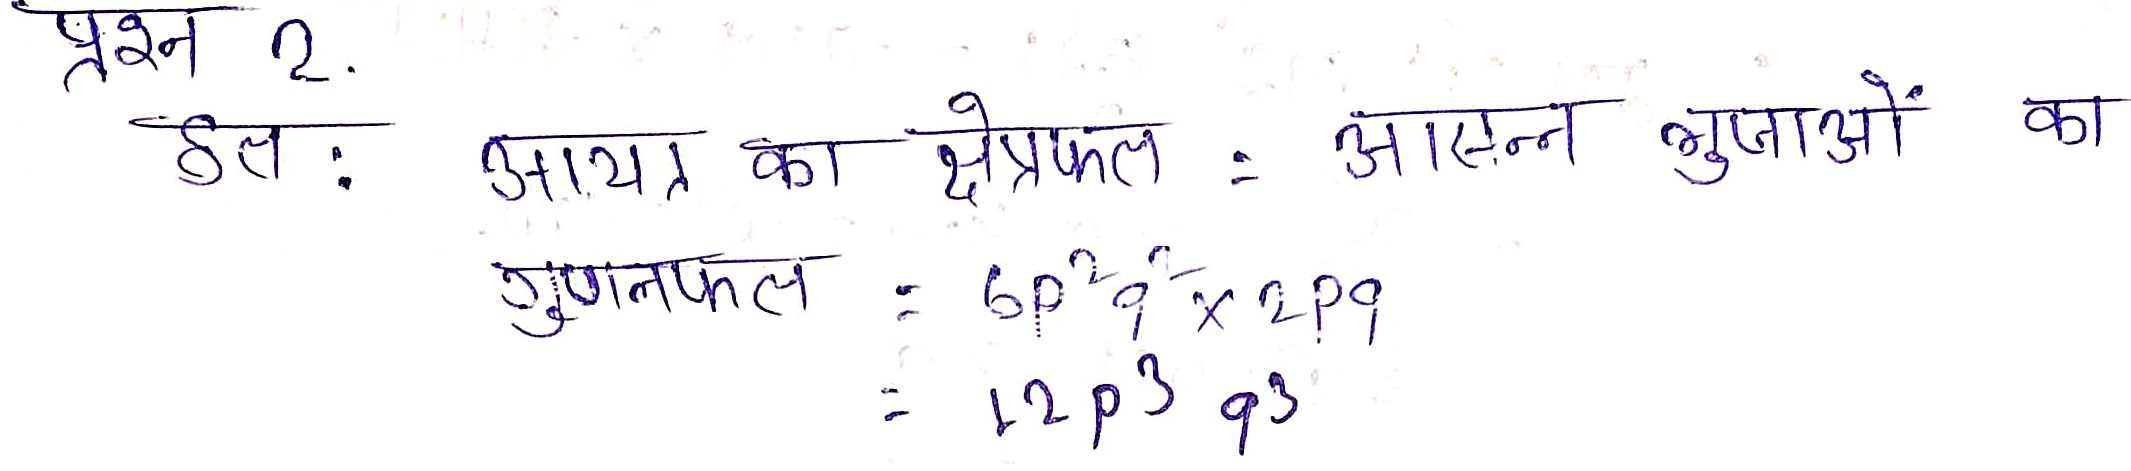 प्रश्न 2.
हल : आयत का क्षेत्रफल = आसन्न भुजाओं का
गुणनफल = 6p²q² × 2pq
= 12p³ q³